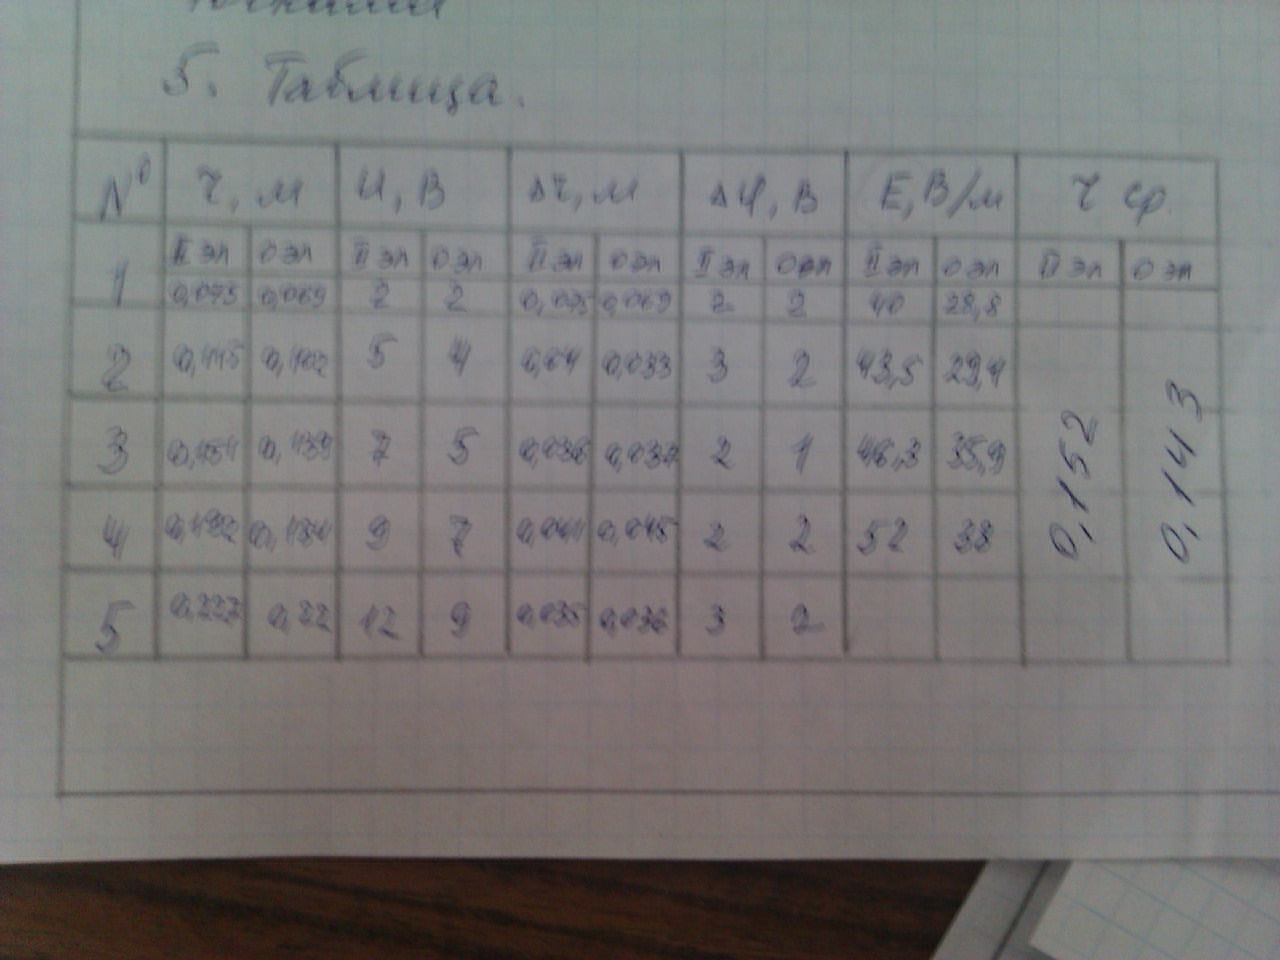 5. Таблица.
№ r, м U, В Δr, м Δφ, В E, В/м r ср
1 II эл 0 эл II эл 0 эл II эл 0 эл II эл 0 эл II эл 0 эл II эл 0 эл
0,075 0,069 2 2 0,075 0,069 2 2 40 28,8
2 0,115 0,102 5 4 0,04 0,033 3 2 43,5 29,4
3 0,151 0,139 7 5 0,036 0,037 2 1 46,3 35,9 0,152 0,143
4 0,192 0,184 9 7 0,041 0,045 2 2 52 38
5 0,227 0,22 12 9 0,035 0,036 3 2